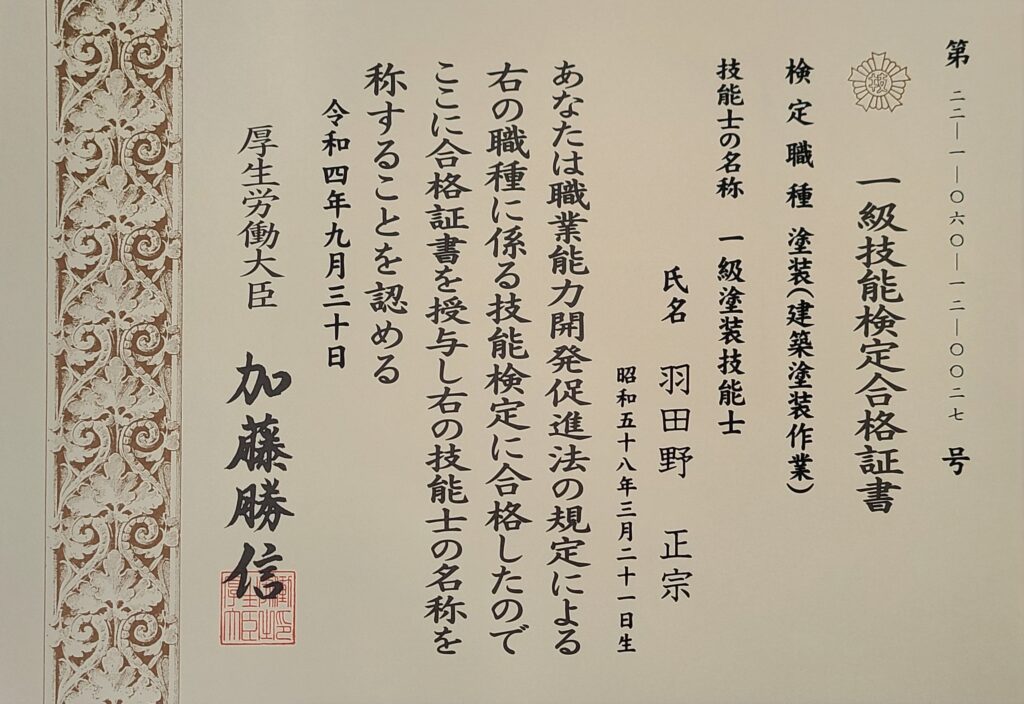 第 二二―一―〇六〇―一二―〇〇二七 号
一級技能検定合格証書
検定職種 塗装(建築塗装作業)
技能士の名称 一級塗装技能士
氏名 羽田野 正宗
昭和五十八年三月二十一日生
あなたは職業能力開発促進法の規定による
右の職種に係る技能検定に合格したので
ここに合格証書を授与し右の技能士の名称を
称することを認める
令和四年九月三十日
厚生労働大臣 加藤勝信